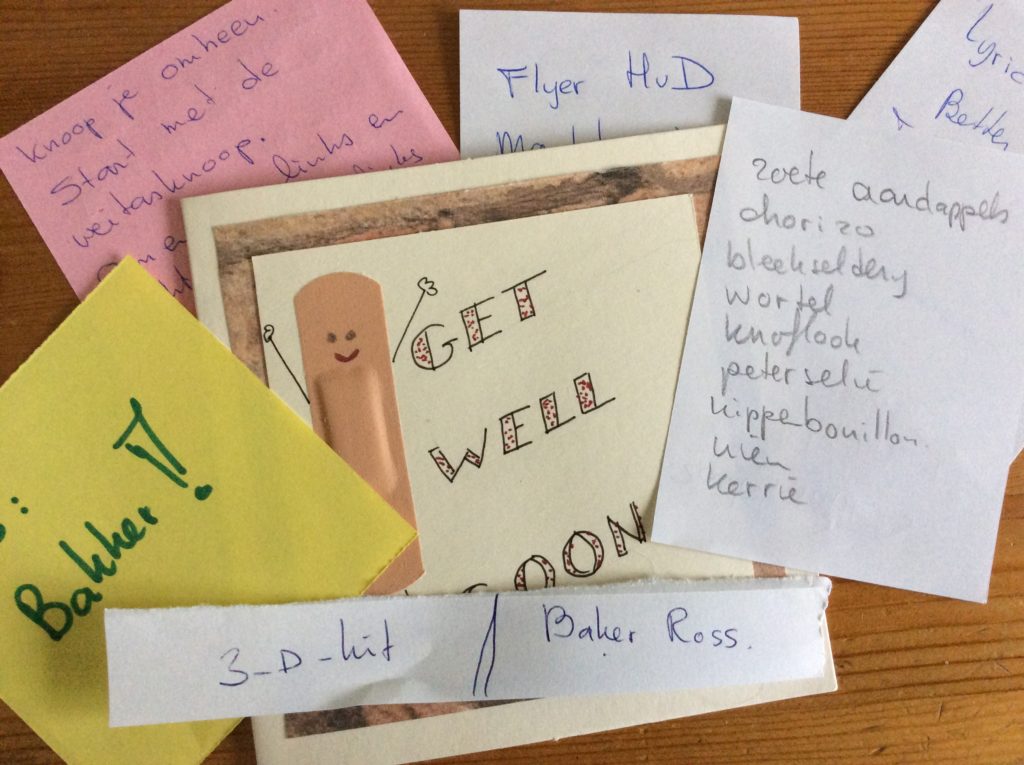 knoop je omheen.
Start met de
weitasknoop.
links en
links
Flyer HvD
Lyric
Better
zoete aardappels
chorizo
bleekseldery
wortel
knoflook
peterselie
kippebouillon.
uien
kerrie
GET
WELL
SOON
Bakker!
3-D-kit // Baker Ross.